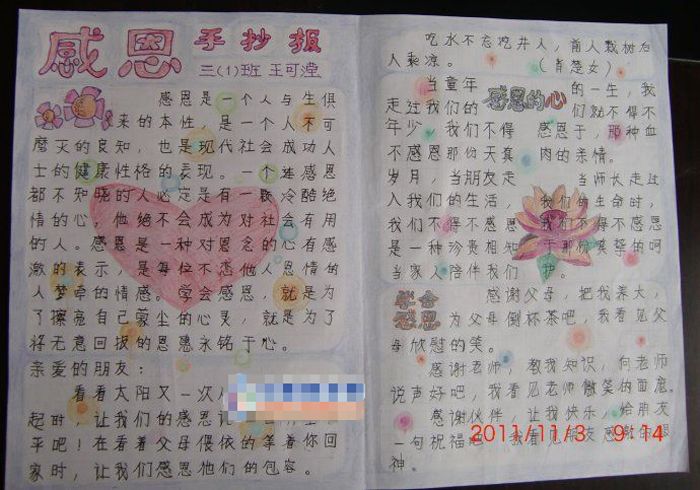 感恩 手抄报
三(1)班 王可滢
感恩是一个人与生俱
来的本性，是一个人不可
磨灭的良知，也是现代社会成功人
士的健康性格的表现。一个连感恩
都不知晓的人必定是有一颗冷酷绝
情的心，他绝不会成为对社会有用
的人。感恩是一种对恩念的心有感
激的表示，是每位不忘他人恩情的
人梦牵的情感。学会感恩，就是为
了擦亮自己蒙尘的心灵，就是为了
将无意回报的恩惠永铭于心。
亲爱的朋友：
看看太阳又一次
起时，让我们的感恩
平吧！在看着父母偎依的等着你回
家时，让我们感恩他们的包容。
吃水不忘挖井人，前人栽树后
人乘凉。 （肖楚女）
感恩的心
当童年
走过我们的
年少，我们不得
不感恩那份天真
岁月，当朋友走
入我们的生活，
我们不得不感恩
是一种珍贵相知
当家人陪伴我们
的一生，我
们就不得不
感恩于，那种血
肉的亲情。
当师长走过
我们的生命时，
我们不得不感恩
于那份真挚的呵
护。
学会
感恩
感谢父母，把我养大，
为父母倒杯茶吧，我看见父
母欣慰的笑。
感谢老师，教我知识，向老师
说声好吧，我看见老师微笑的面庞。
感谢伙伴，让我快乐，给朋友
一句祝福吧，我看见朋友感激的眼
神。
2011/11/3 9:14